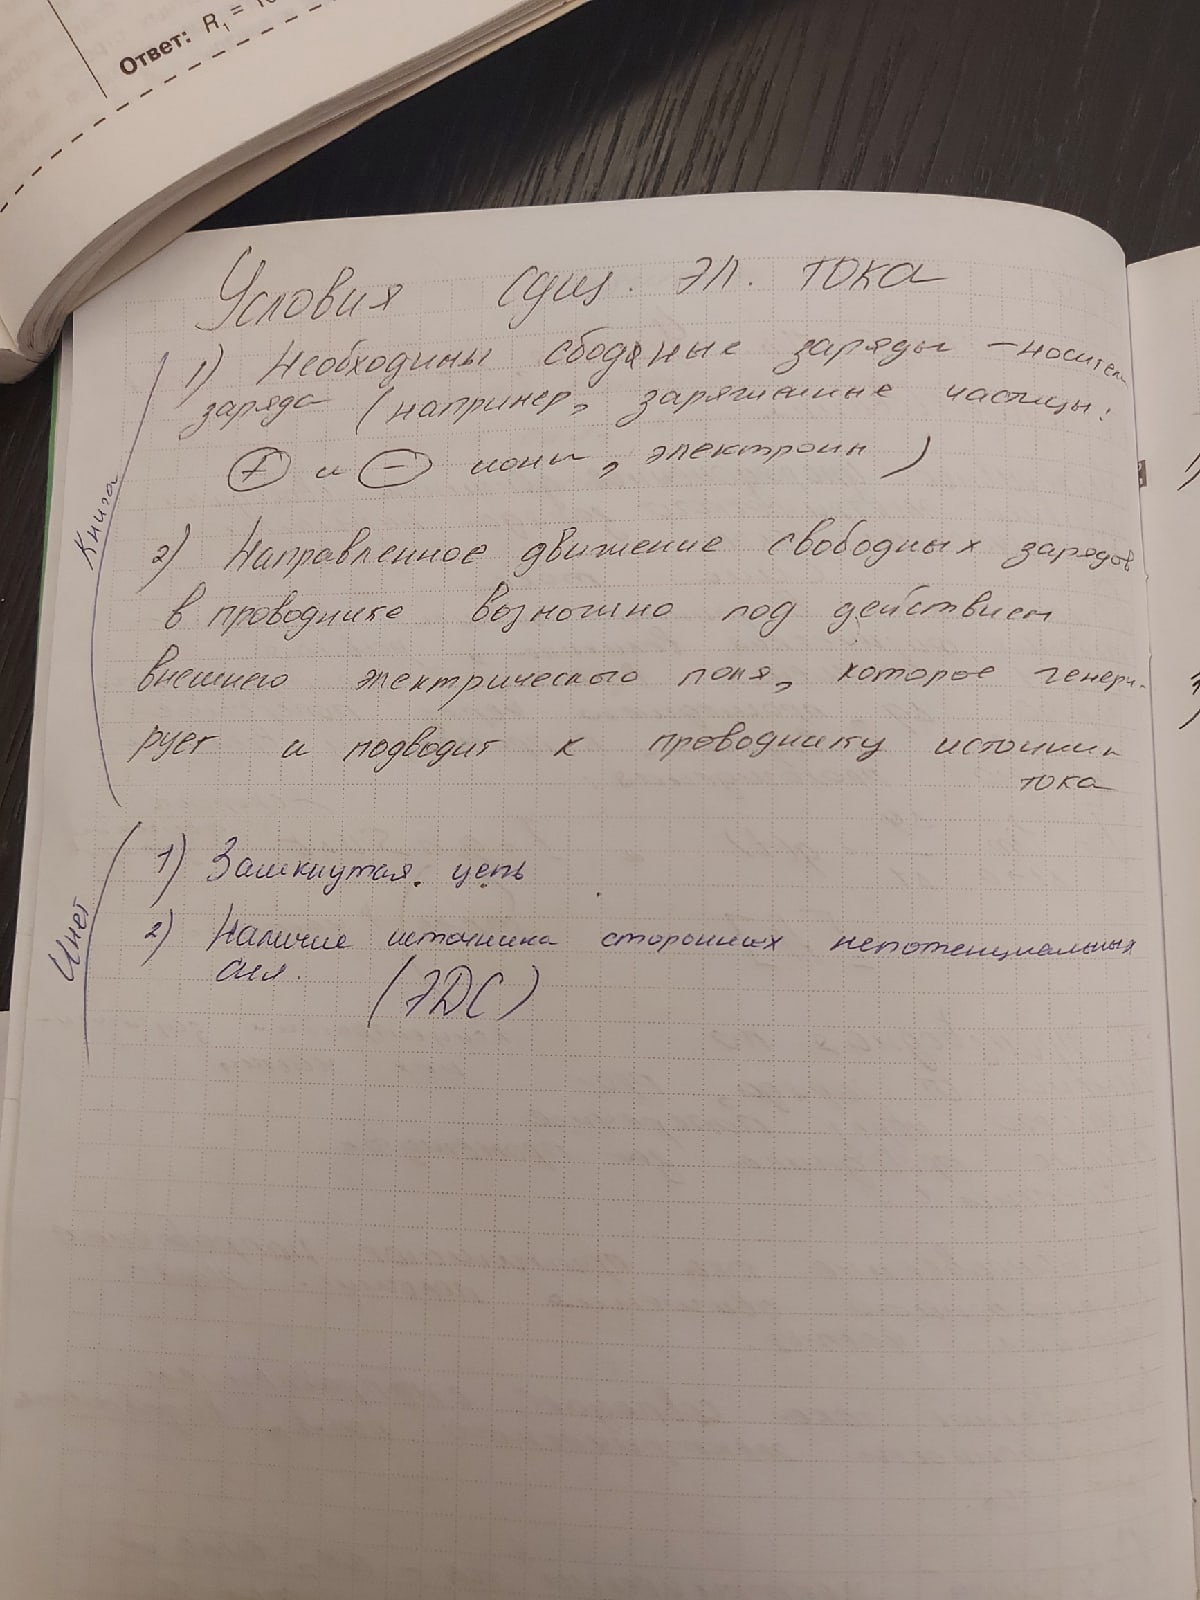 Ответ: R₁ =
Условия сущ. эл. тока
1) Необходины сбодяные заряды – носители
заряда (например, заряженные частицы:
⊕ и ⊖ ионы, электроны)
Книга
2) Направленное движение свободных зарядов
в проводнике возможно под действием
внешнего электрического поля, которое генери-
рует и подводит к проводнику источник
тока
1) Замкнутая цепь
Инет
2) Наличие источника сторонних непотенциальных
сил. (ЭДС)